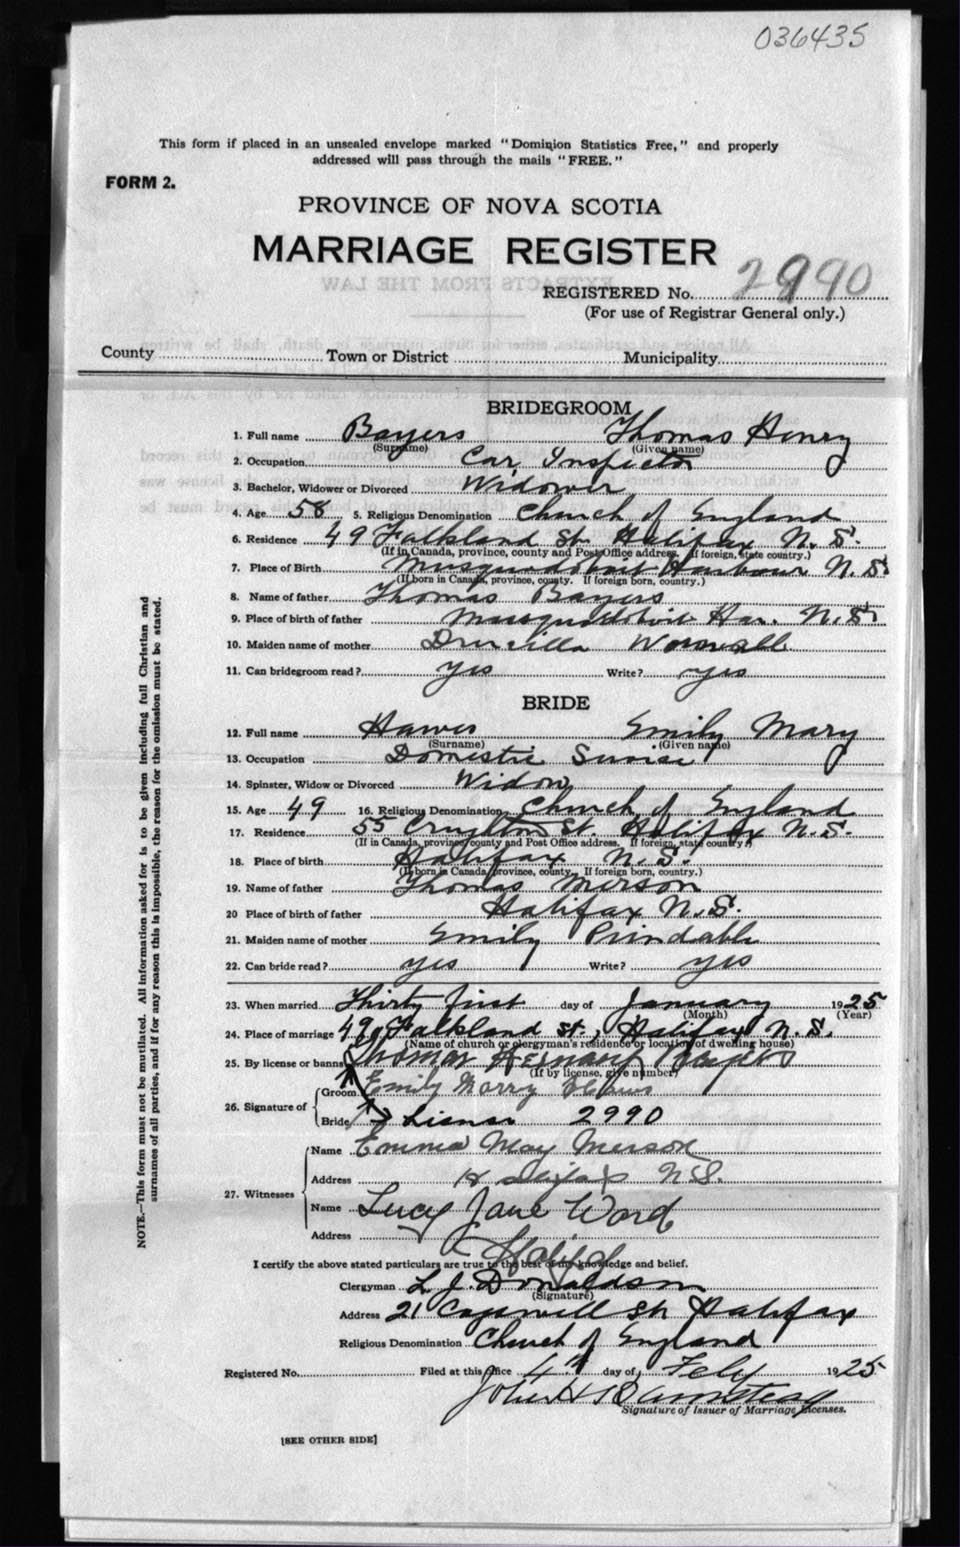 036435
This form if placed in an unsealed envelope marked "Dominion Statistics Free," and properly
addressed will pass through the mails "FREE."
FORM 2.
PROVINCE OF NOVA SCOTIA
MARRIAGE REGISTER
REGISTERED No. 2990
(For use of Registrar General only.)
County Town or District Municipality
BRIDEGROOM
1. Full name Bayers Thomas Henry
(Surname) (Given name)
2. Occupation Car Inspector
3. Bachelor, Widower or Divorced Widower
4. Age 58 5. Religious Denomination Church of England
6. Residence 49 Falkland St. Halifax N. S.
(If in Canada, province, county and Post Office address. If foreign, state country.)
7. Place of Birth Musquodoboit Harbour N. S.
(If born in Canada, province, county. If foreign born, country.)
8. Name of father Thomas Bayers
9. Place of birth of father Musquodoboit Har. N. S.
10. Maiden name of mother Drucilla
11. Can bridegroom read? yes Write? yes
BRIDE
12. Full name Hawes Emily Mary
(Surname) (Given name)
13. Occupation Domestic
14. Spinster, Widow or Divorced Widow
15. Age 49 16. Religious Denomination Church of England
17. Residence 55 Creighton St. Halifax N. S.
(If in Canada, province, county and Post Office address. If foreign, state country.)
18. Place of birth Halifax N. S.
(If born in Canada, province, county. If foreign born, country.)
19. Name of father Thomas Merson
20 Place of birth of father Halifax N. S.
21. Maiden name of mother Emily
22. Can bride read? yes Write? yes
23. When married Thirty first day of January 1925
(Month) (Year)
24. Place of marriage 49 Falkland St., Halifax N. S.
(Name of church or clergyman's residence or location of dwelling house)
25. By license or banns Thomas Bayers
(If by license, give number)
26. Signature of Groom Emily Marry Haws
Bride Lisense 2990
27. Witnesses Name Emma May Merson
Address Halifax N.S.
Name Lucy Jane Ward
Address Halifax
I certify the above stated particulars are true to the best of my knowledge and belief.
Clergyman L. J. Donaldson
(Signature)
Address 21 Cogswell St. Halifax
Religious Denomination Church of England
Registered No. Filed at this office 4th day of Feby 1925
John H Barnstead
Signature of Issuer of Marriage Licenses.
[SEE OTHER SIDE]
NOTE.—This form must not be mutilated. All information asked for is to be given including full Christian and
surnames of all parties, and if for any reason this is impossible, the reason for the omission must be stated.